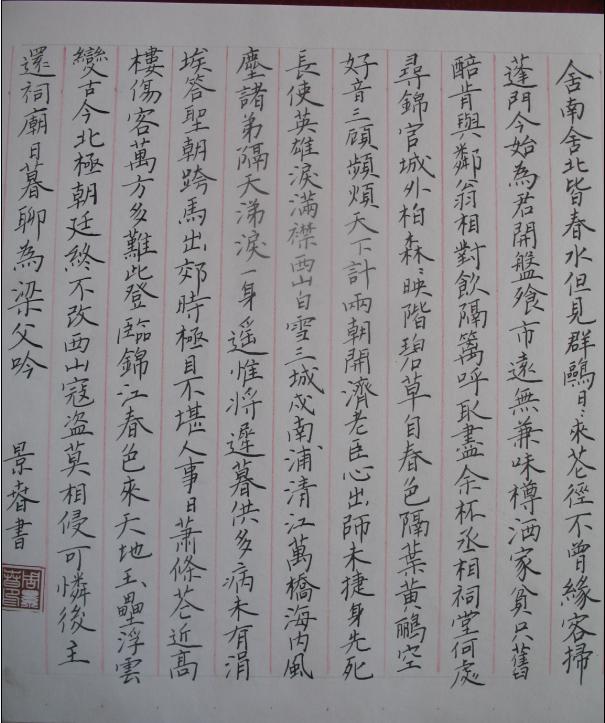 舍南舍北皆春水但見群鷗日〻來花徑不曾緣客掃
蓬門今始為君開盤飱市遠無兼味樽酒家貧只舊
醅肯與鄰翁相對飲隔籬呼取盡余杯丞相祠堂何處
尋錦官城外柏森〻映階碧草自春色隔葉黃鸝空
好音三顧頻煩天下計兩朝開濟老臣心出師未捷身先死
長使英雄淚滿襟西山白雪三城戍南浦清江萬橋海內風
塵諸弟隔天涕淚一身遥惟將遲暮供多病未有涓
埃答聖朝跨馬出郊時極目不堪人事日蕭條花近高
樓傷客萬方多難此登臨錦江春色來天地玉壘浮雲
變古今北極朝廷終不改西山寇盜莫相侵可憐後主
還祠廟日暮聊為梁父吟
景春書